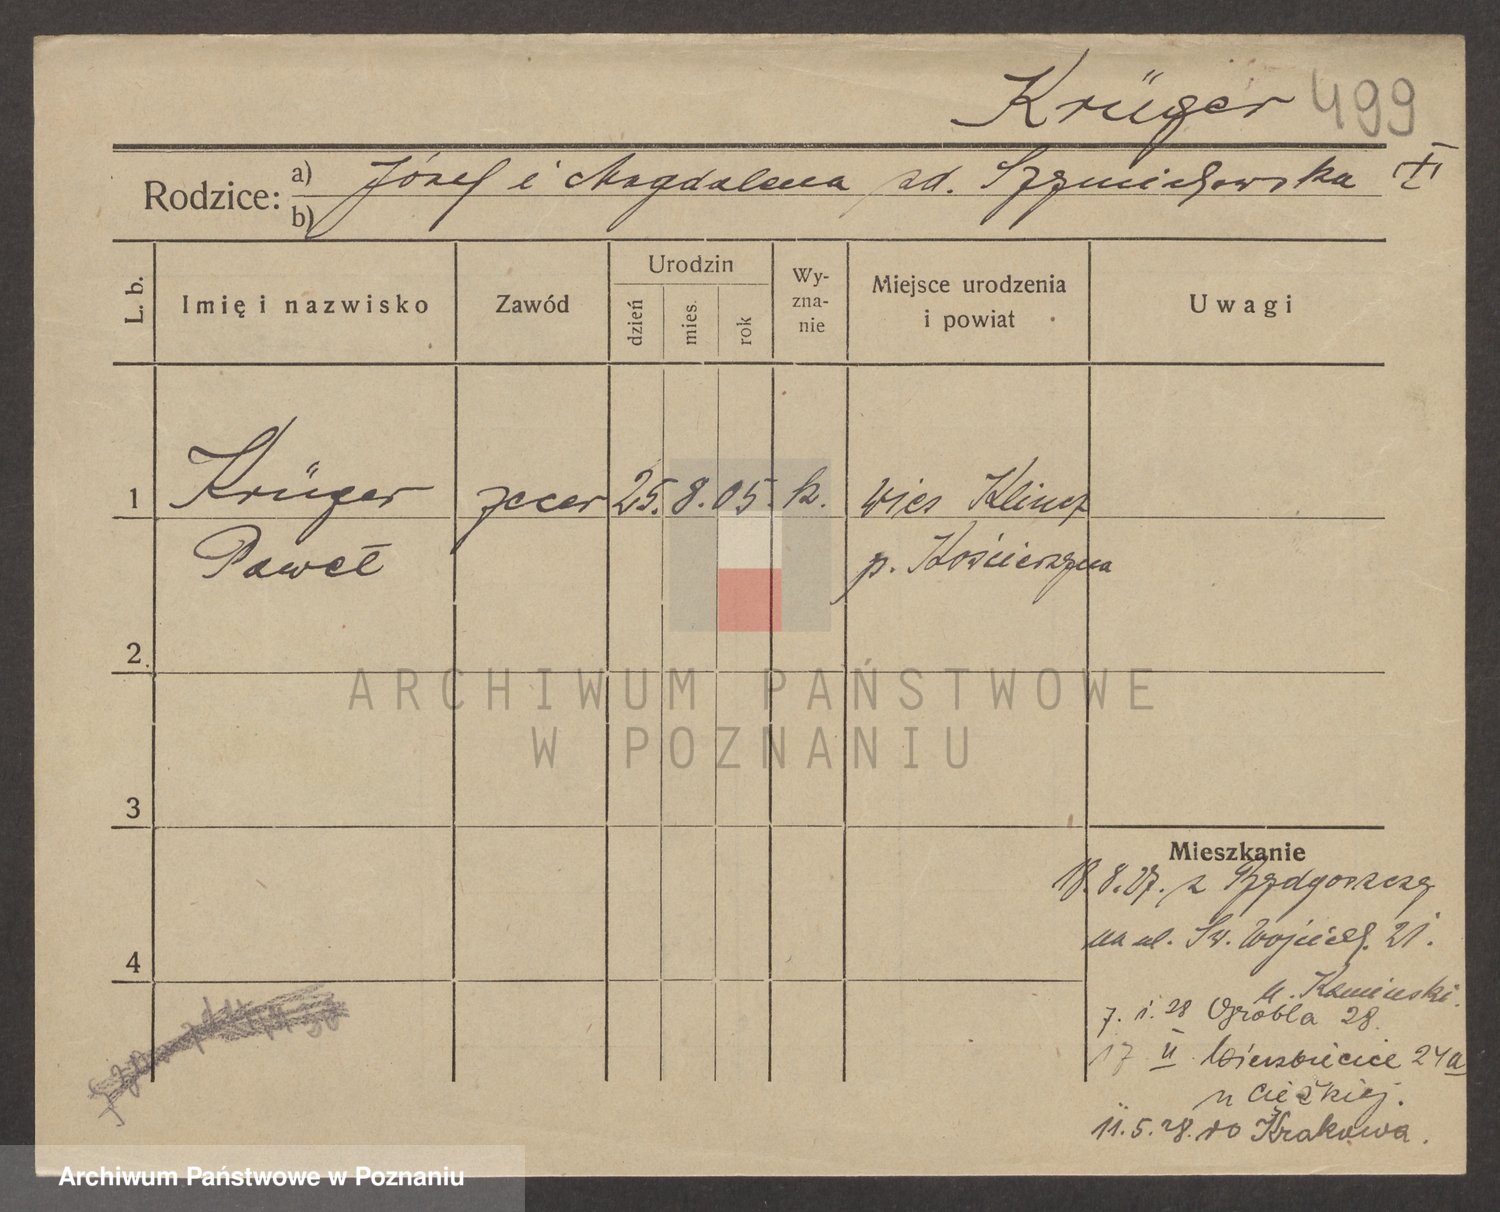 Krüger 499
Rodzice: a) Józef i Magdalena zd. Szymichowska VI
b)
L. b.
Imię i nazwisko
Zawód
Urodzin
dzień
mies.
rok
Wy-
zna-
nie
Miejsce urodzenia
i powiat
Uwagi
1 Krüger zecer 25. 8. 05. k. wieś Klincz
Paweł p. Kościerzyna
2
3
4
ARCHIWUM PAŃSTWOWE
W POZNANIU
Mieszkanie
18.8.27. z Bydgoszczy
na ul. Św. Wojciech. 21.
u. Kamiński.
7. i. 28 Grobla 28.
17 II Wierzbiecice 24a
u Cieżkiej.
11.5.28. do Krakowa.
Archiwum Państwowe w Poznaniu